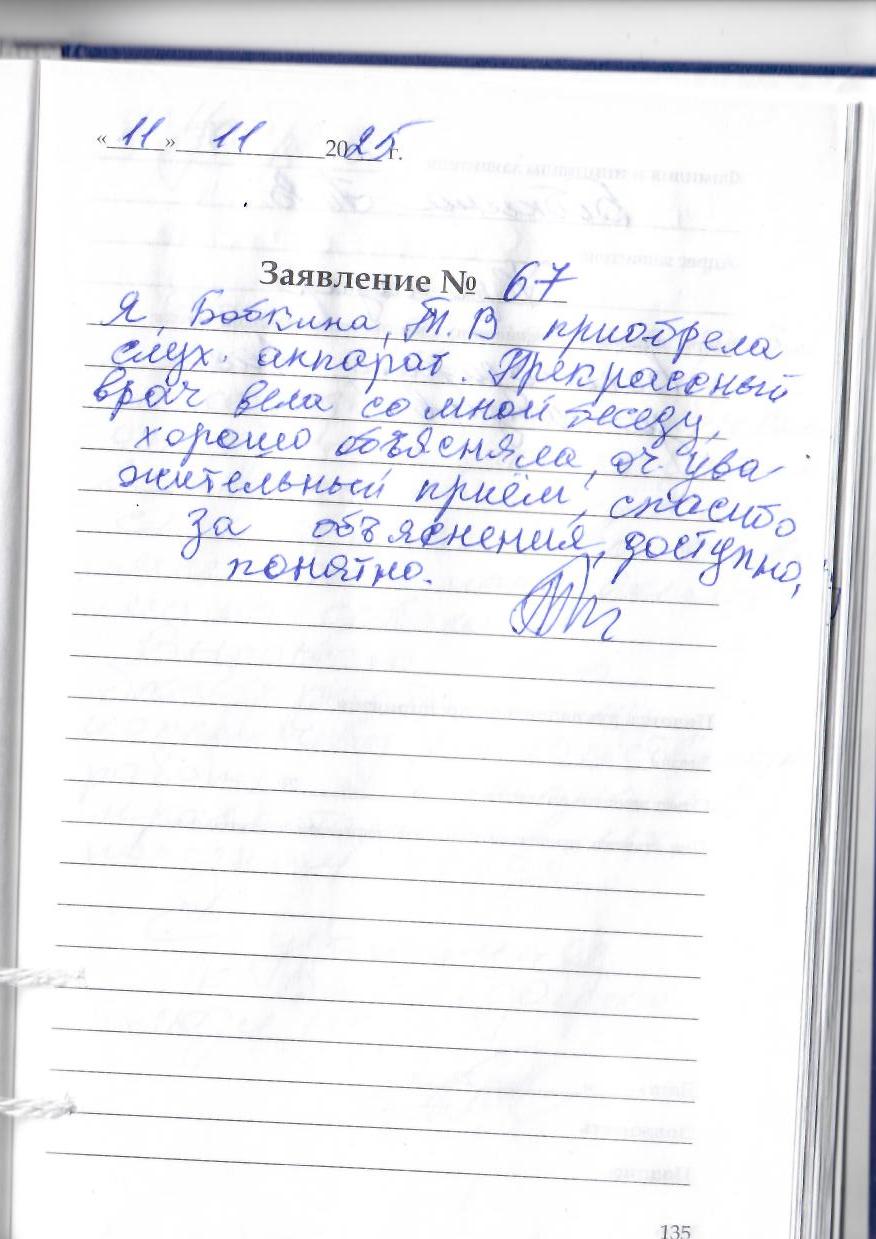 «11» 11 2025 г.
Заявление № 67
Я, Бобкина, Т. В приобрела
слух. аппарат. Прекрасный
врач вела со мной беседу,
хорошо объясняла, оч. ува
жительный приём, спасибо
за объяснения, доступно,
понятно.
135